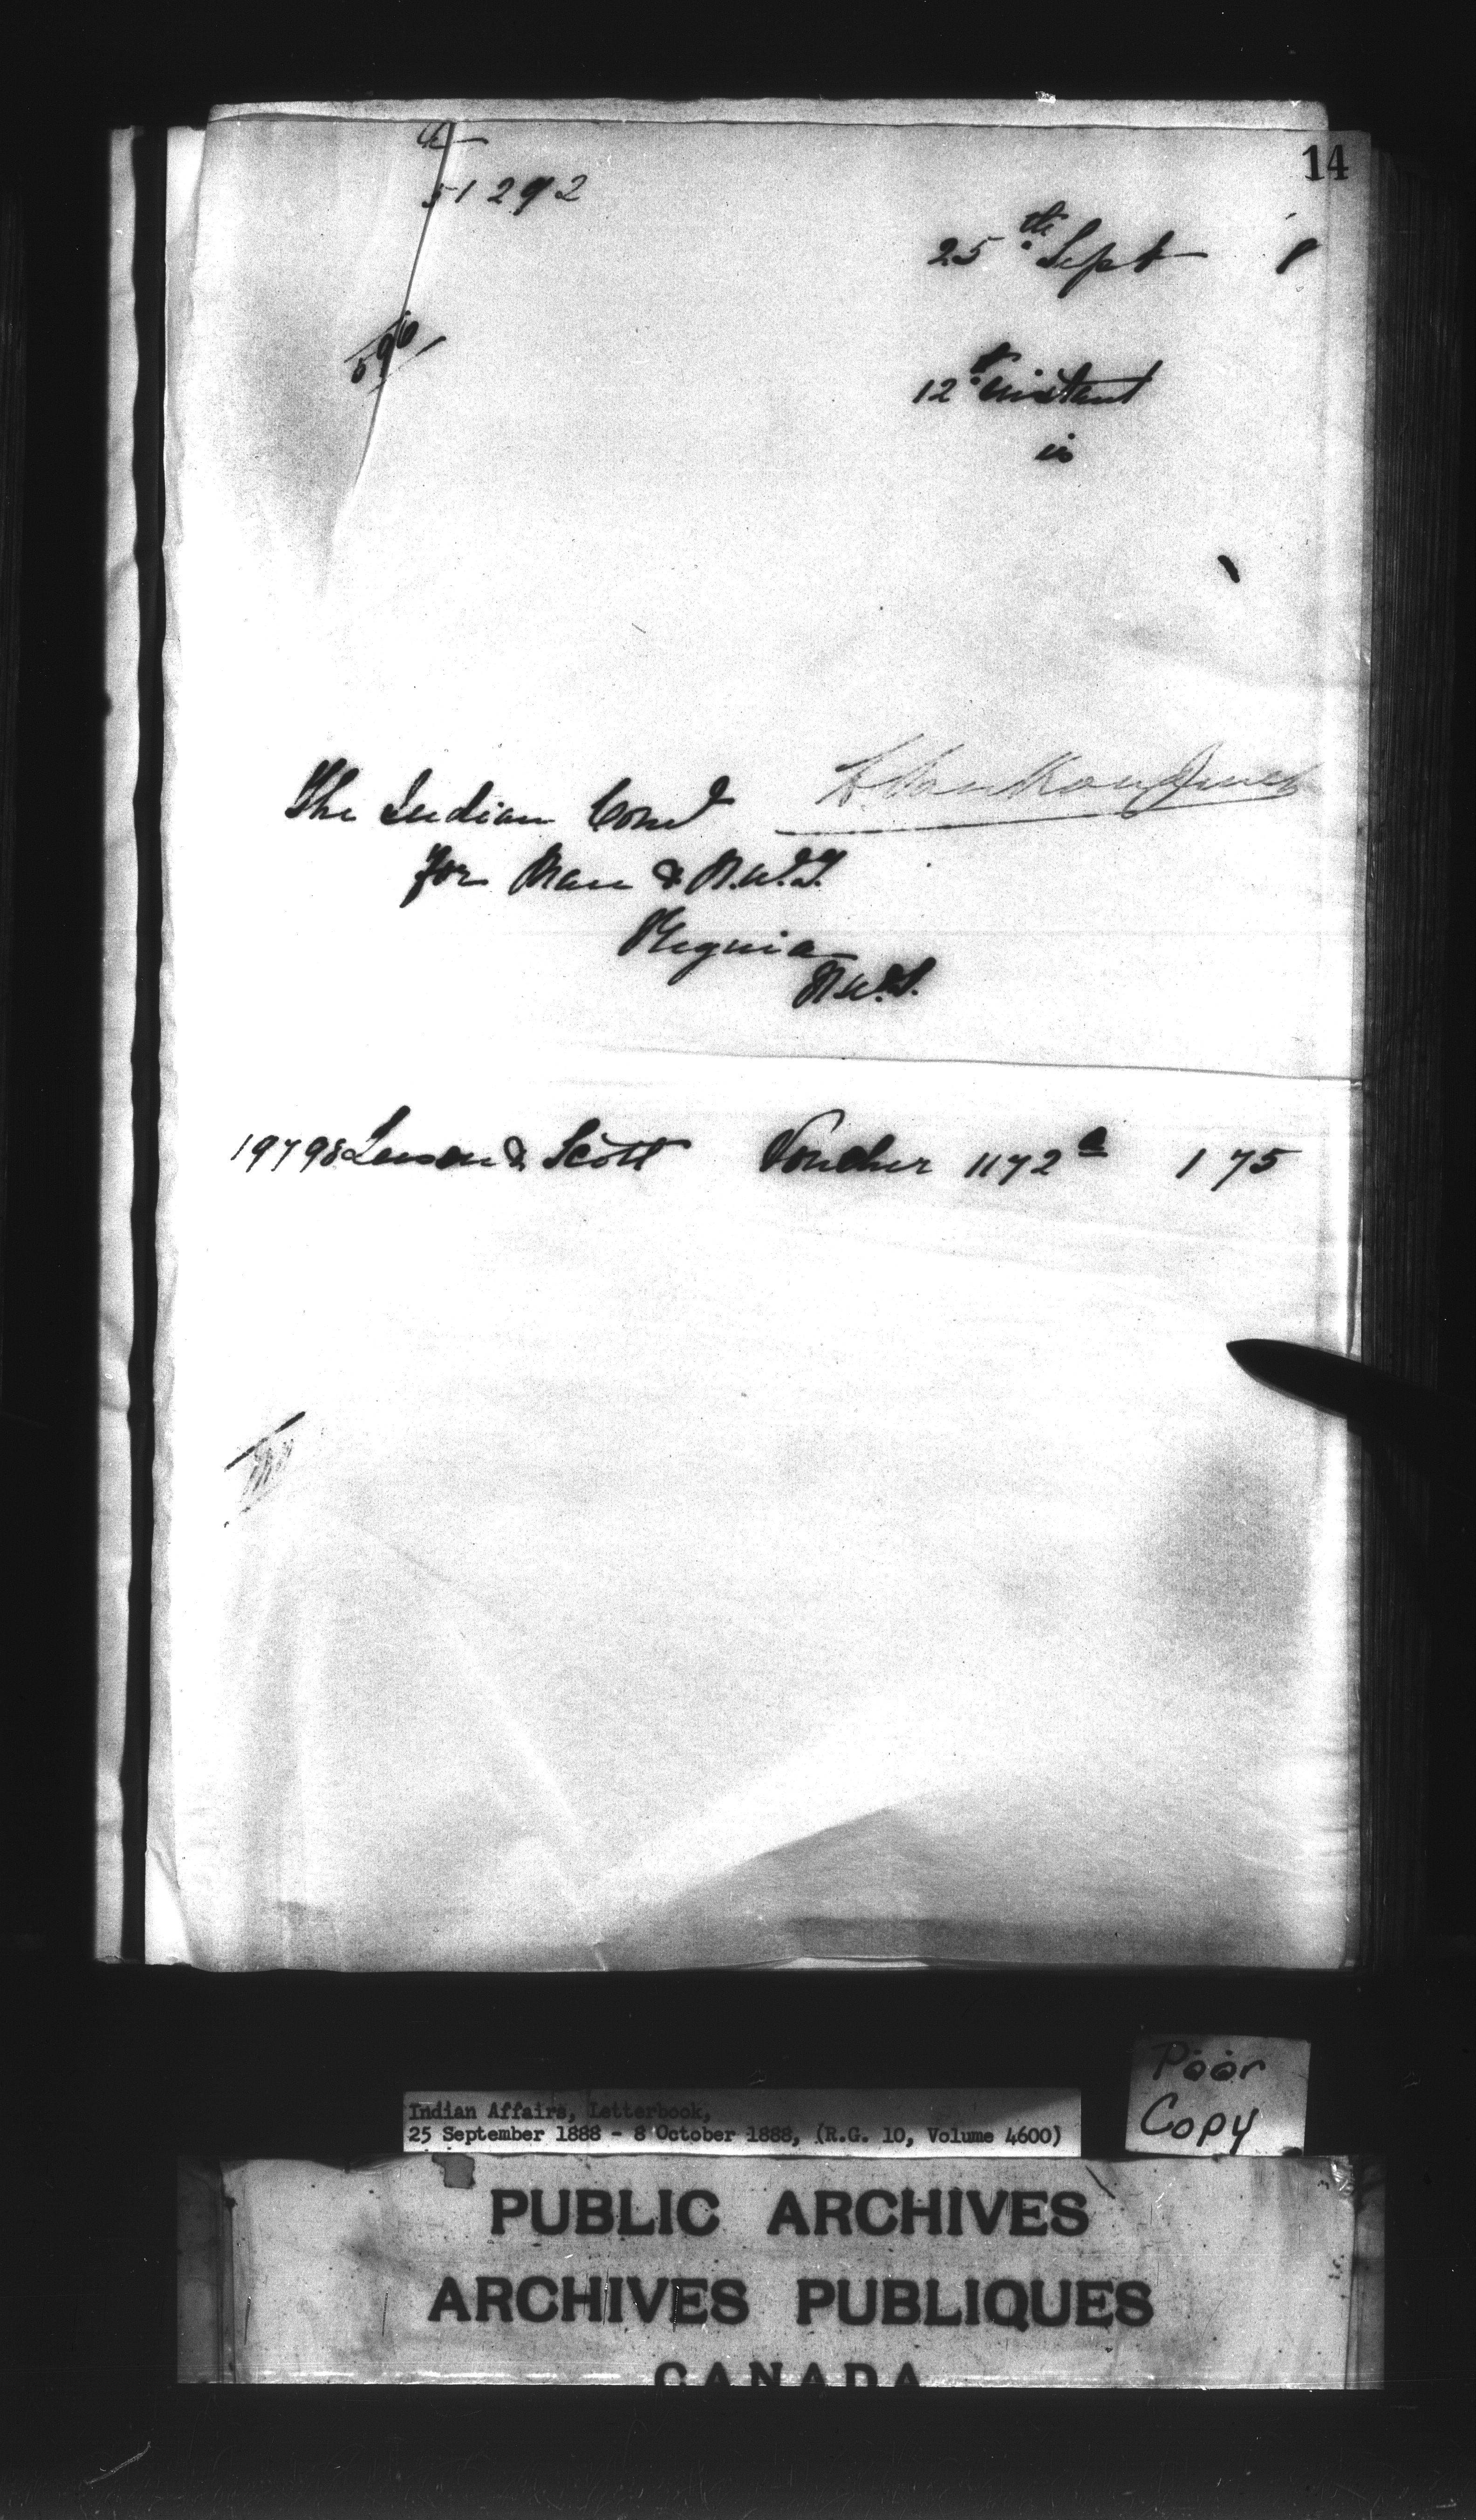 14
51292
25th Sept 8
590
12th instant
is
The Indian Comr L. Vankoughnet
for Man & N.W.T.
Regina
N.W.T.
19798 Leeson & Scott Voucher 1172a 1 75
Poor
Copy
Indian Affairs, Letterbook,
25 September 1888 - 8 October 1888, (R.G. 10, Volume 4600)
PUBLIC ARCHIVES
ARCHIVES PUBLIQUES
CANADA